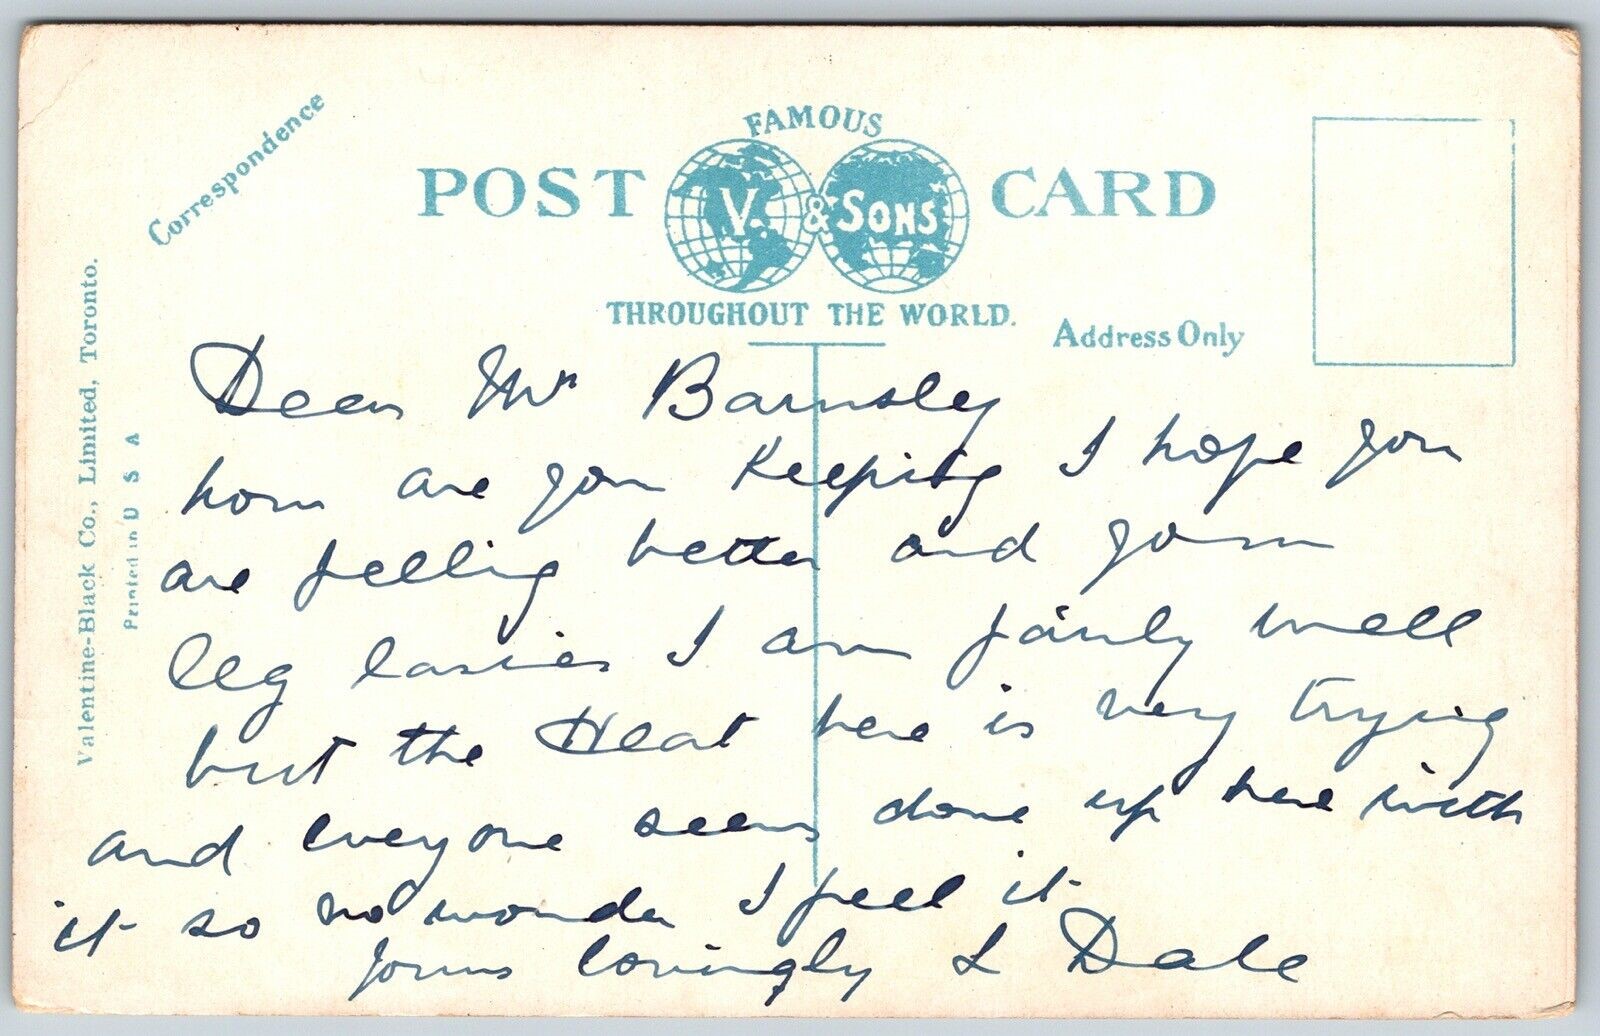 Correspondence
FAMOUS
POST V. & SONS CARD
THROUGHOUT THE WORLD.
Address Only
Valentine-Black Co., Limited, Toronto.
Printed in U S A
Dear Mr Barnsley
how are you Keeping I hope you
are feeling better and your
leg easier I am fairly well
but the Heat here is very trying
and everyone seems done up here with
it so no wonder I feel it
yours lovingly L Dale